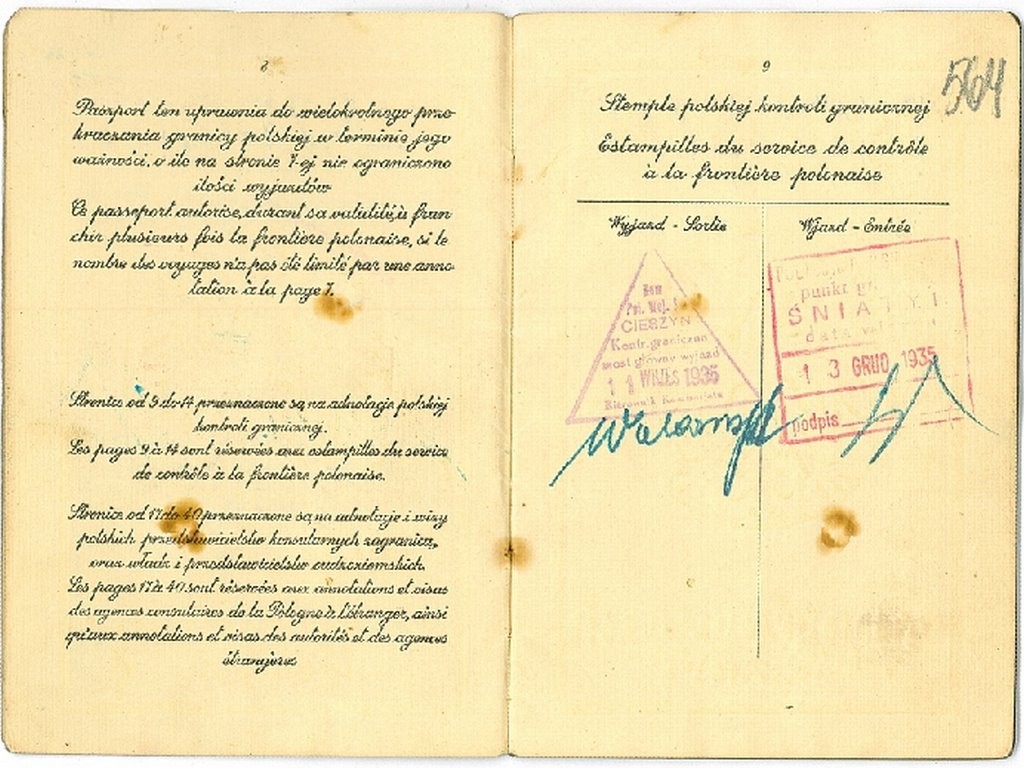 8
Paszport ten uprawnia do wielokrotnego prze-
kraczania granicy polskiej w terminie jego
ważności, o ile na stronie 7-ej nie ograniczono
ilości wyjazdów
Ce passeport autorise, durant sa validité, à fran-
chir plusieurs fois la frontière polonaise, si le
nombre des voyages n'a pas été limité par une anno-
tation à la page 7.
Stronice od 9 do 14 przeznaczone są na adnotacje polskiej
kontroli granicznej.
Les pages 9 à 14 sont réservées aux estampilles du service
de contrôle à la frontière polonaise.
Stronice od 17 do 40 przeznaczone są na adnotacje i wizy
polskich przedstawicielstw konsularnych zagranicą,
oraz władz i przedstawicielstw cudzoziemskich.
Les pages 17 à 40 sont réservées aux annotations et visas
des agences consulaires de la Pologne à l'étranger, ainsi
qu'aux annotations et visas des autorités et des agences
étrangères
9
564
Stemple polskiej kontroli granicznej
Estampilles du service de contrôle
à la frontière polonaise
Wyjazd - Sortie
Wjazd - Entrée
CIESZYN
Kontr. graniczna
most główny wyjazd
11 WRZES 1935
punkt
ŚNIATYN
data
13 GRUD. 1935
podpis